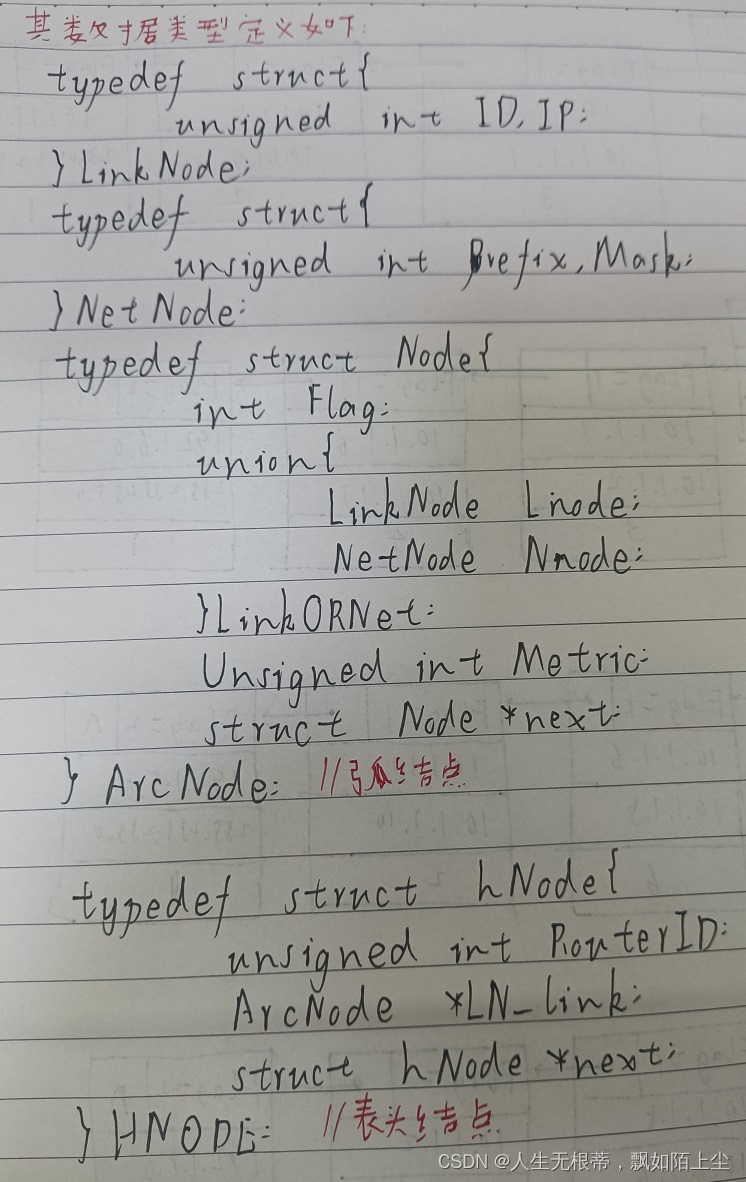 其数据类型定义如下:
typedef struct{
unsigned int ID, IP;
}LinkNode;
typedef struct{
unsigned int Prefix, Mask;
}NetNode;
typedef struct Node{
int Flag;
union{
LinkNode Lnode;
NetNode Nnode;
}LinkORNet;
Unsigned int Metric;
struct Node *next;
} ArcNode; //弧结点
typedef struct hNode{
unsigned int RouterID;
ArcNode *LN_link;
struct hNode *next;
} HNODE; //表头结点
CSDN @人生无根蒂，飘如陌上尘